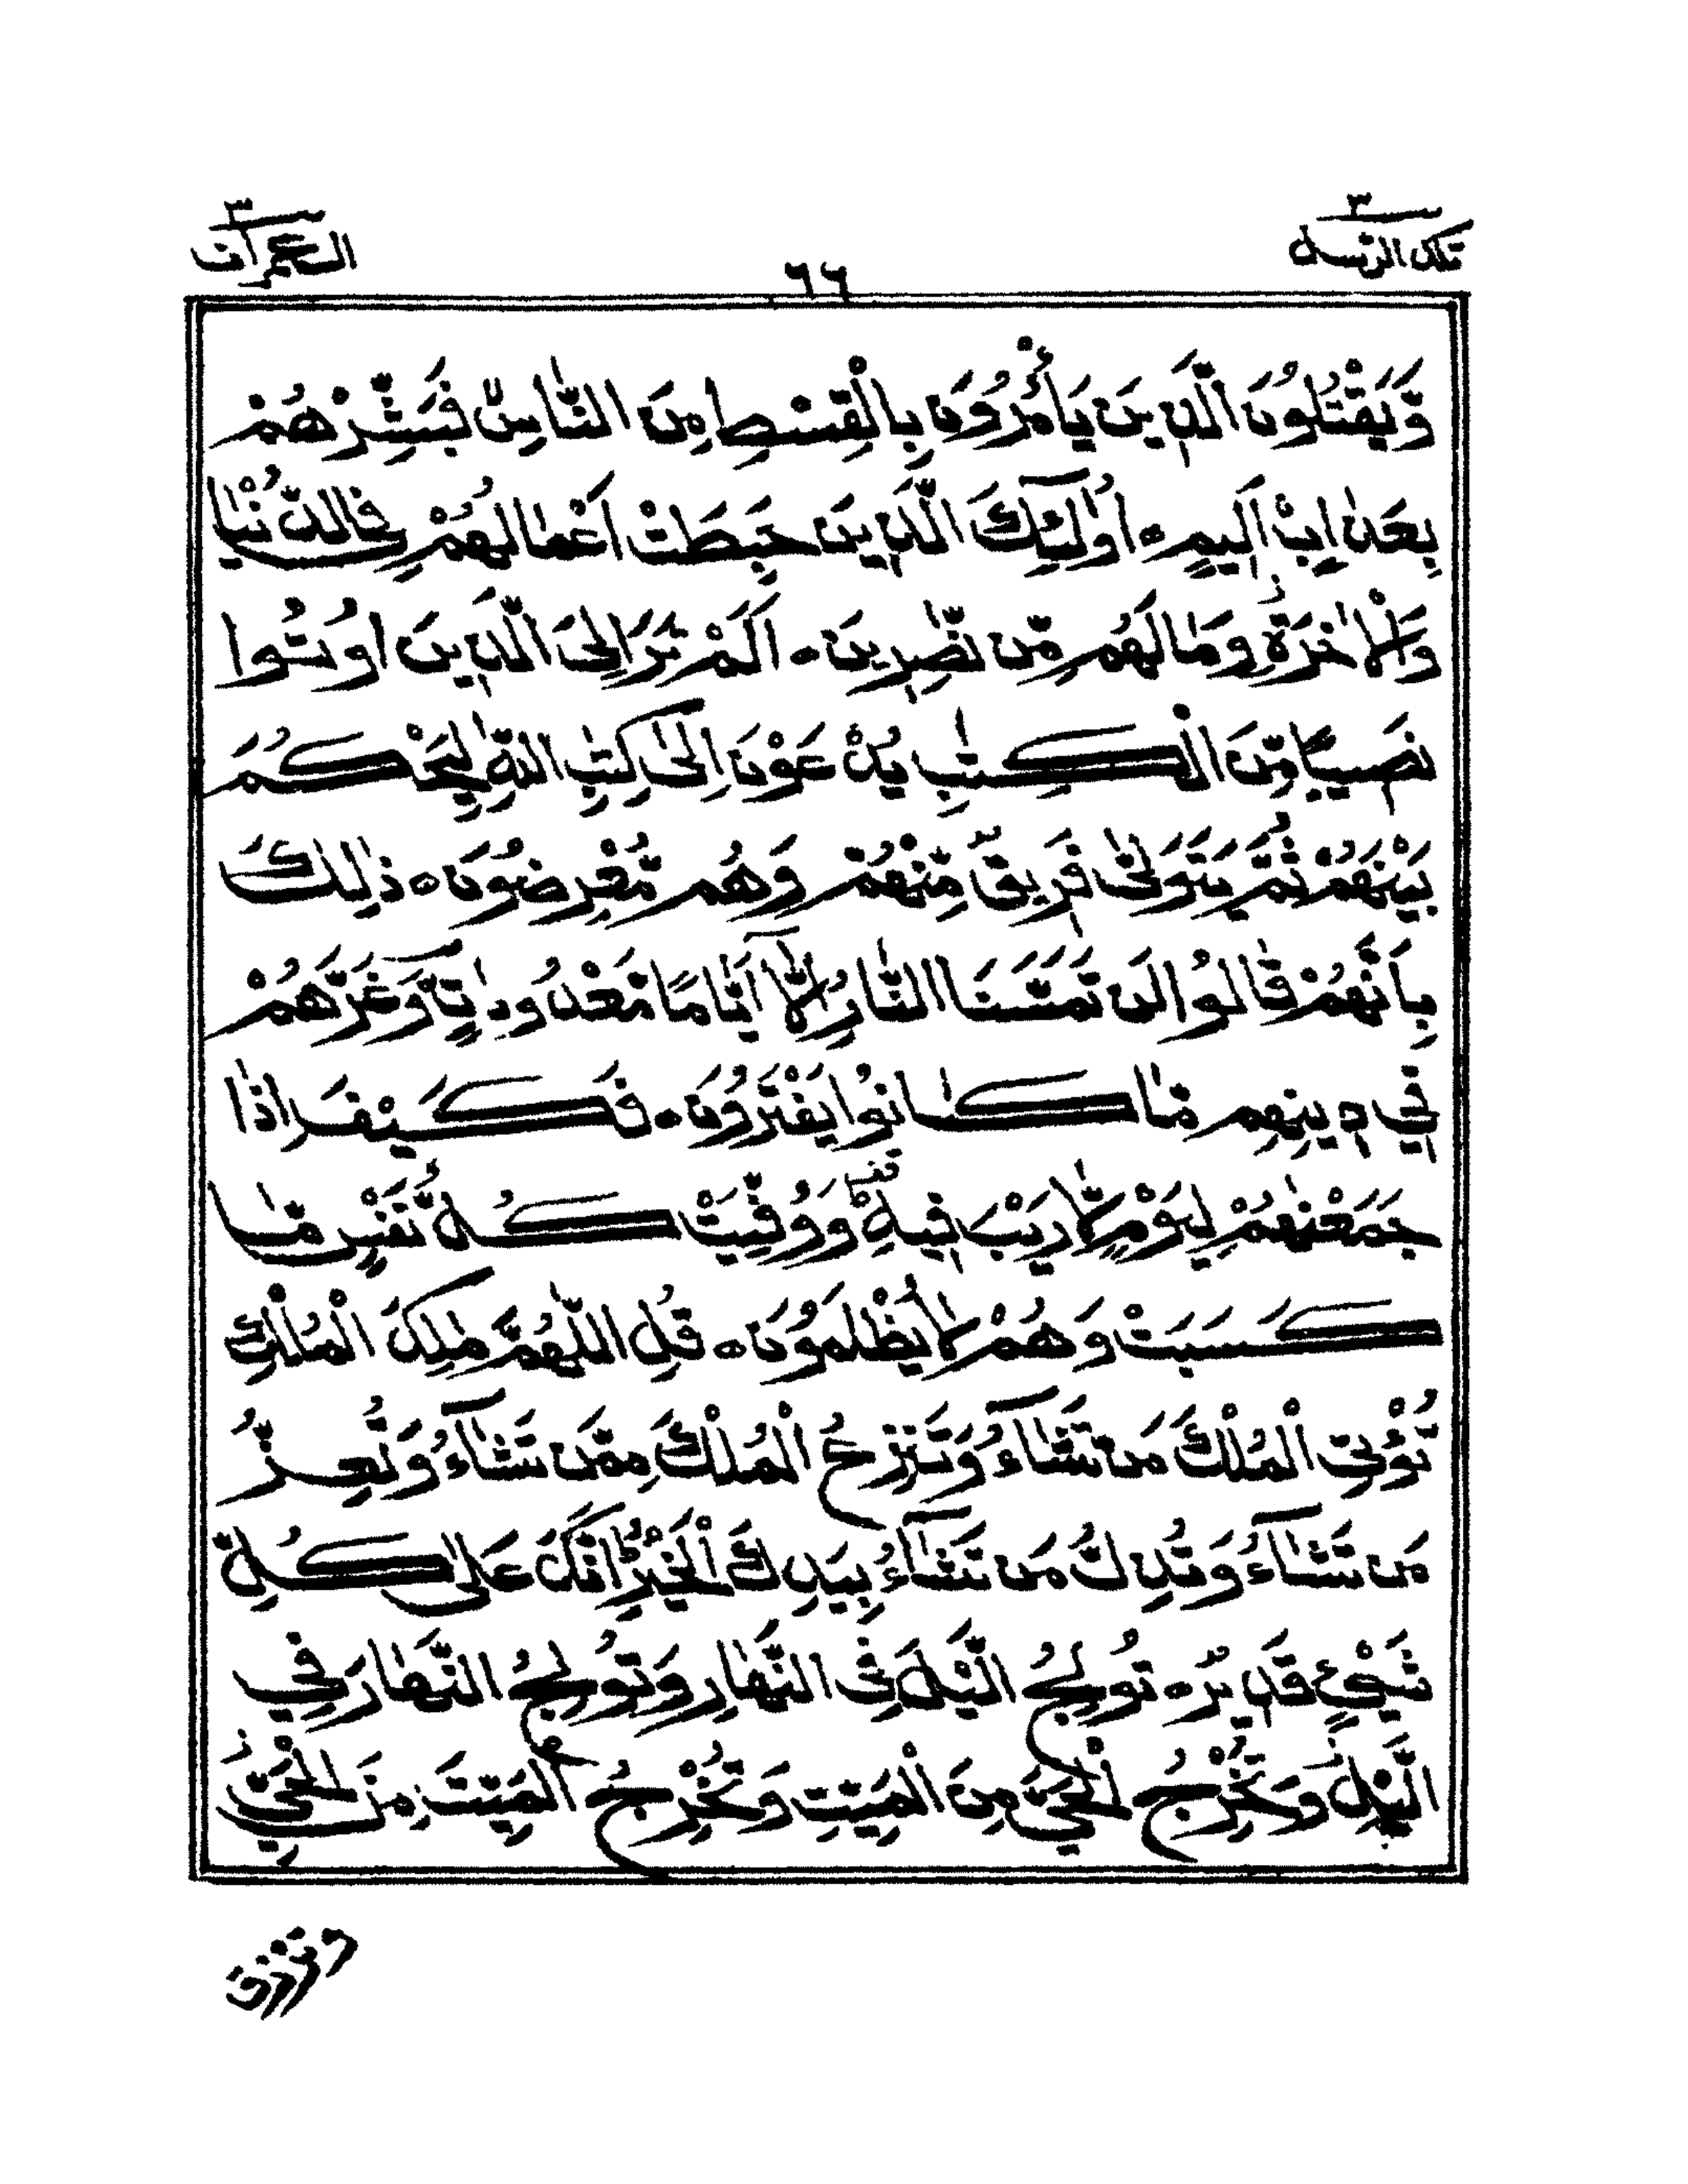 تلك الرسل ٣
٦٦
ال عمران ٣
وَّيَقْتُلُوْنَ الَّذِيْنَ يَأْمُرُوْنَ بِالْقِسْطِ مِنَ النَّاسِ فَبَشِّرْهُمْ
بِعَذَابٍ اَلِيْمٍ ۝ اُولٰٓئِكَ الَّذِيْنَ حَبِطَتْ اَعْمَالُهُمْ فِي الدُّنْيَا
وَالْاٰخِرَةِ وَمَا لَهُمْ مِّنْ نّٰصِرِيْنَ ۝ اَلَمْ تَرَ اِلَى الَّذِيْنَ اُوْتُوْا
نَصِيْبًا مِّنَ الْكِتٰبِ يُدْعَوْنَ اِلٰى كِتٰبِ اللّٰهِ لِيَحْكُمَ
بَيْنَهُمْ ثُمَّ يَتَوَلّٰى فَرِيْقٌ مِّنْهُمْ وَهُمْ مُّعْرِضُوْنَ ۝ ذٰلِكَ
بِاَنَّهُمْ قَالُوْا لَنْ تَمَسَّنَا النَّارُ اِلَّآ اَيَّامًا مَّعْدُوْدَاتٍ وَّغَرَّهُمْ
فِيْ دِيْنِهِمْ مَّا كَانُوْا يَفْتَرُوْنَ ۝ فَكَيْفَ اِذَا
جَمَعْنٰهُمْ لِيَوْمٍ لَّا رَيْبَ فِيْهِ وَوُفِّيَتْ كُلُّ نَفْسٍ مَّا
كَسَبَتْ وَهُمْ لَا يُظْلَمُوْنَ ۝ قُلِ اللّٰهُمَّ مٰلِكَ الْمُلْكِ
تُؤْتِي الْمُلْكَ مَنْ تَشَآءُ وَتَنْزِعُ الْمُلْكَ مِمَّنْ تَشَآءُ وَتُعِزُّ
مَنْ تَشَآءُ وَتُذِلُّ مَنْ تَشَآءُ بِيَدِكَ الْخَيْرُ اِنَّكَ عَلٰى كُلِّ
شَيْءٍ قَدِيْرٌ ۝ تُوْلِجُ الَّيْلَ فِي النَّهَارِ وَتُوْلِجُ النَّهَارَ فِي
الَّيْلِ وَتُخْرِجُ الْحَيَّ مِنَ الْمَيِّتِ وَتُخْرِجُ الْمَيِّتَ مِنَ الْحَيِّ
وترزق